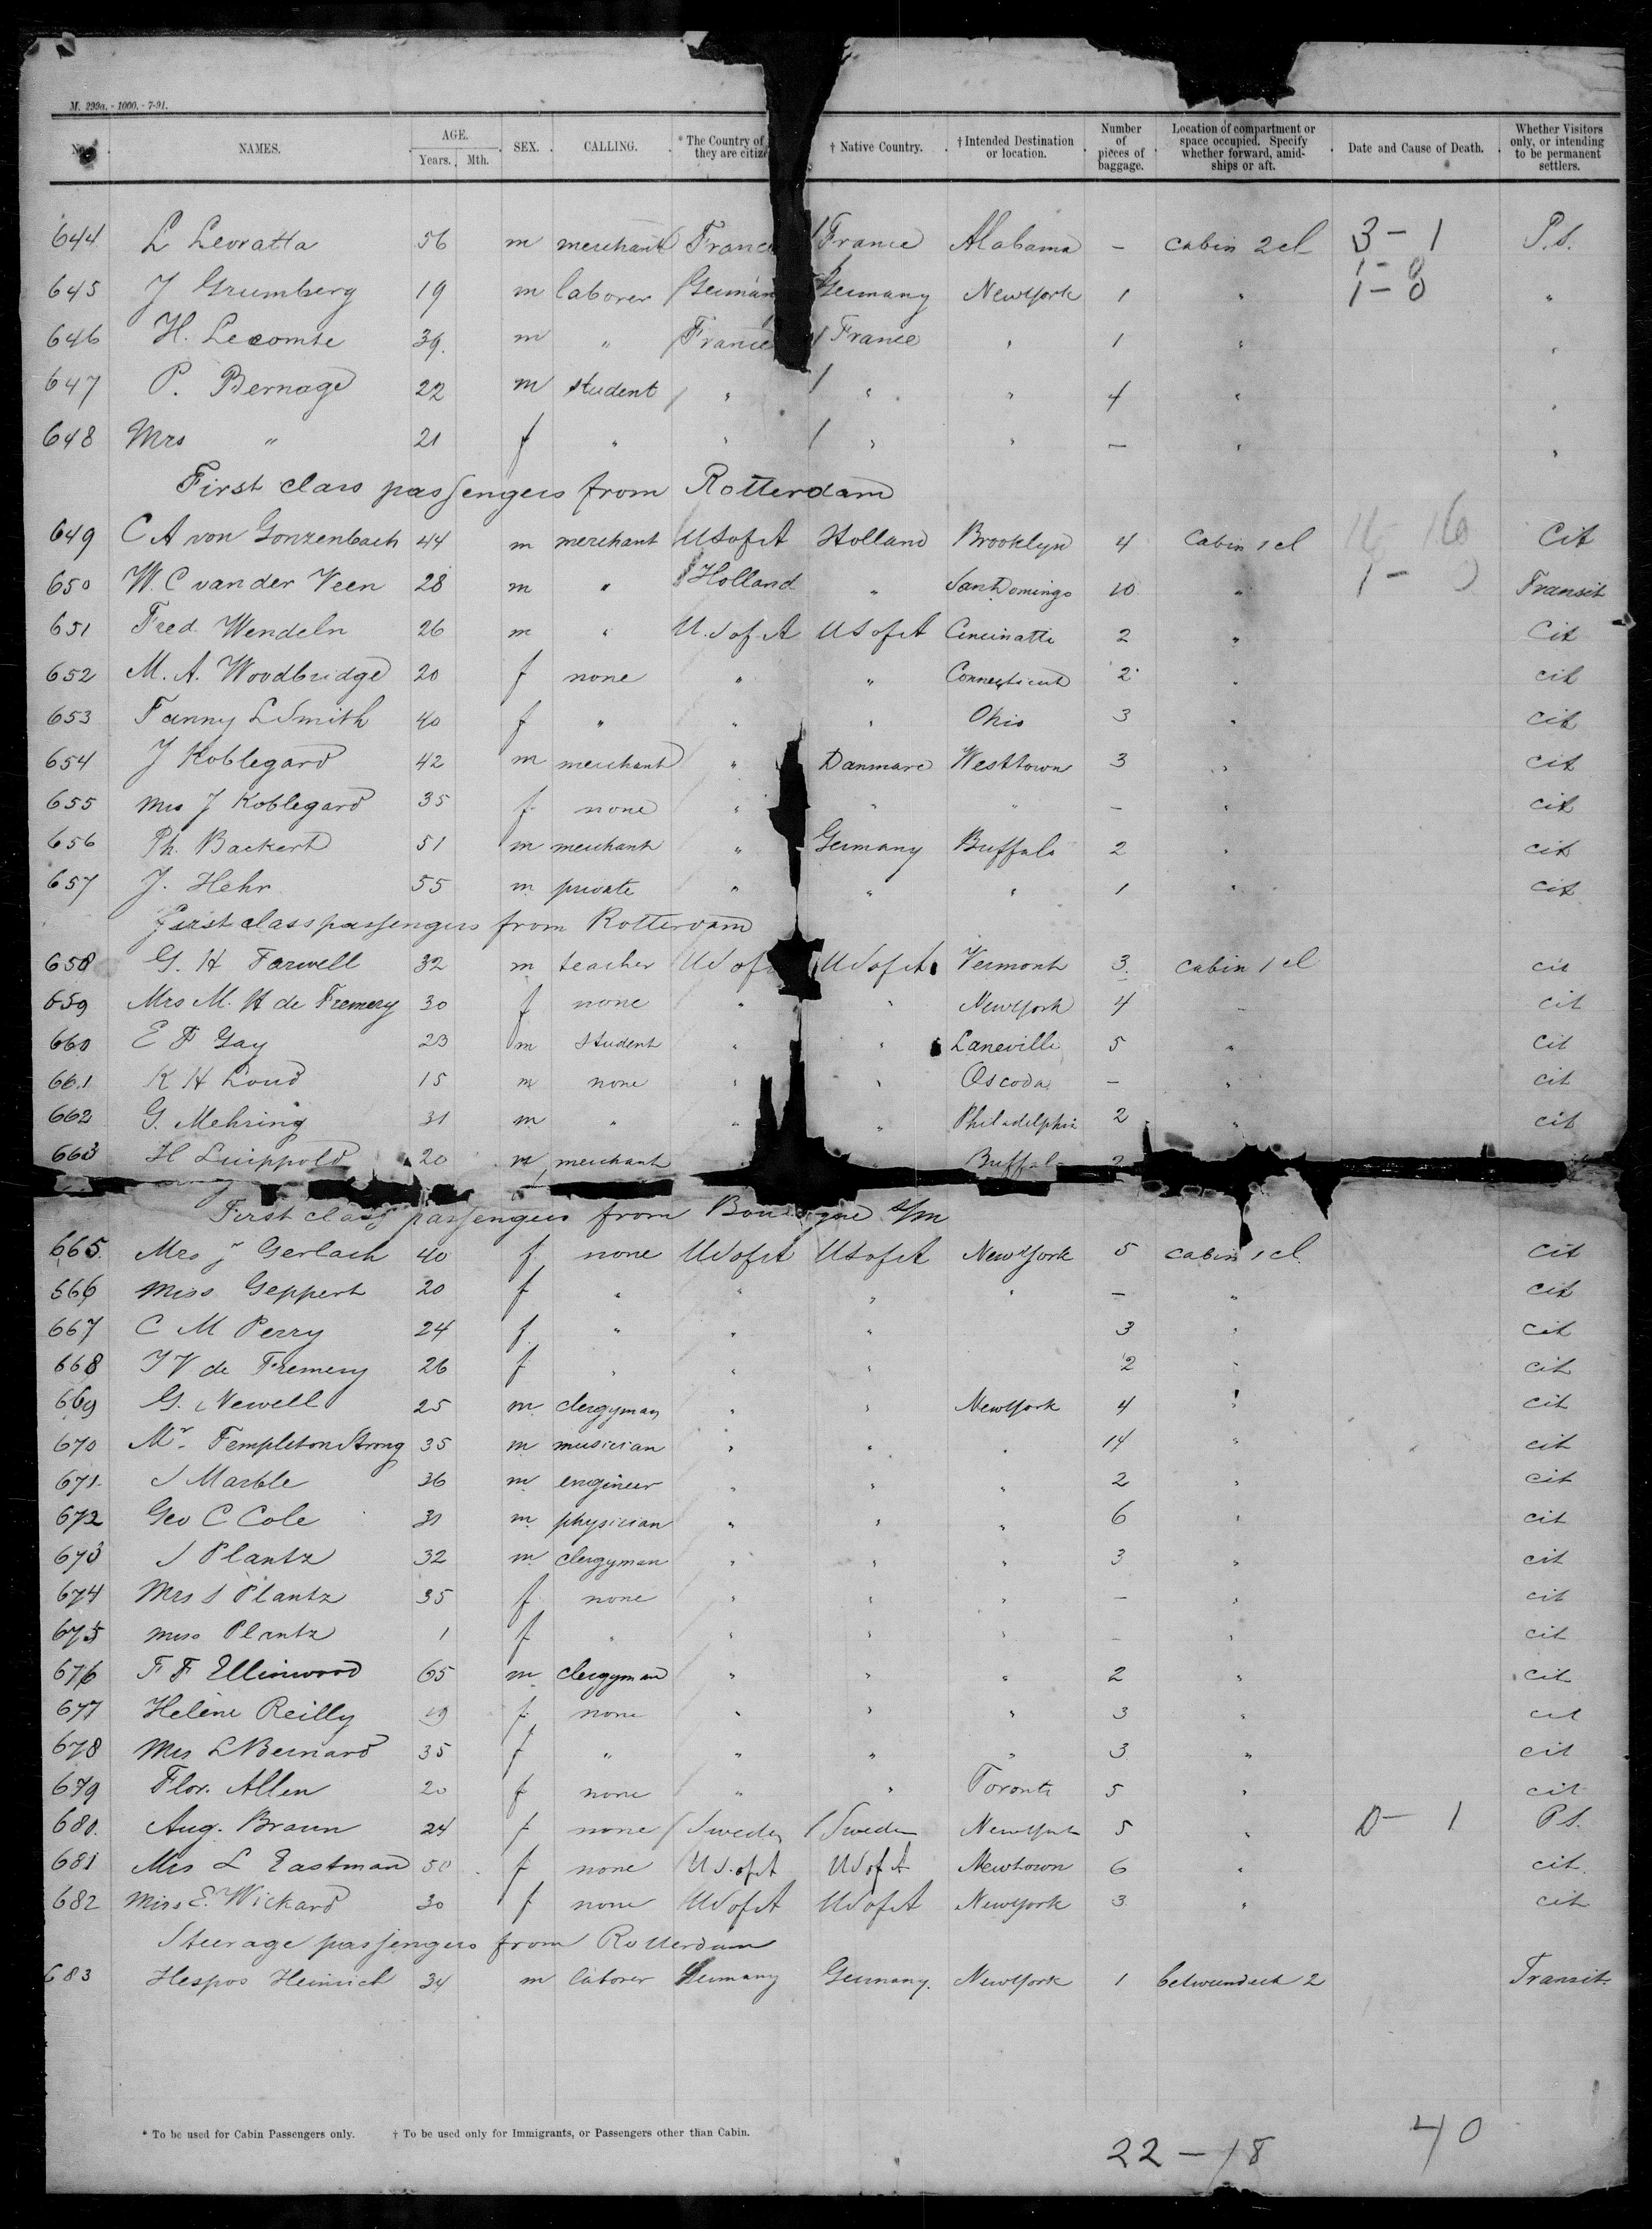 M. 299a. - 1000. - 7-91.
No. NAMES. AGE. Years. Mth. SEX. CALLING. * The Country of they are citize † Native Country. † Intended Destination or location. Number of pieces of baggage. Location of compartment or space occupied. Specify whether forward, amidships or aft. Date and Cause of Death. Whether Visitors only, or intending to be permanent settlers.
644 L Levratta 56 m merchant France France Alabama — cabin 2cl 3 - 1 P.S.
645 J Grumberg 19 m laborer German Germany New York 1 " 1 - 0 "
646 H. Lecomte 39. m " France France " 1 " "
647 P. Bernage 22 m student " " " 4 " "
648 Mrs " 21 f " " " " — " "
First class passengers from Rotterdam
649 C A von Gonzenbach 44 m merchant U S of A Holland Brooklyn 4 Cabin 1 cl 16 Cit
650 W. C van der Veen 28 m " Holland " San Domingo 10 " 1 - 0 Transit
651 Fred. Wendeln 26 m " U. S of A U S of A Cincinatti 2 " Cit
652 M. A. Woodbridge 20 f none " " Connecticut 2 " cit
653 Fanny L Smith 40 f " " " Ohio 3 " cit
654 J Koblegard 42 m merchant " Danmarc Westtown 3 " cit
655 Mrs J Koblegard 35 f none " " " — " cit
656 Ph. Backert 51 m merchant " Germany Buffalo 2 " cit
657 J. Hehr 55 m private " " " 1 " cit
First class passengers from Rotterdam
658 G. H Farwell 32 m teacher U S of U S of A Vermont 3 cabin 1 cl cit
659 Mrs M. H de Fremery 30 f none " " New York 4 " cit
660 E F Gay 23 m student " " Laneville 5 " cit
661 K H Loud 15 m none " " Oscoda — " cit
662 G. Mehring 31 m " " " Philadelphia 2 " cit
663 H Luippold 20 m merchant Buffal 2
First class passengers from Boulogne s/m
665. Mrs J Gerlach 40 f none U S of A U S of A New York 5 cabin 1 cl. cit
666 Miss Geppert 20 f " " " " — " cit
667 C M Perry 24 f " " " 3 " cit
668 J V de Fremery 26 f " " " 2 " cit
669 G. Newell 25 m clergyman " " New York 4 " cit
670 Mr. Templeton Strong 35 m musician " " " 14 " cit
671. S Marble 36 m engineer " " " 2 " cit
672 Geo C Cole 31 m physician " " " 6 " cit
673 S Plantz 32 m clergyman " " " 3 " cit
674 Mrs S Plantz 35 f none " " " — " cit
675 Miss Plantz 1 f " " " " — " cit
676 F F Ellinwood 65 m clergyman " " " 2 " cit
677 Helene Reilly 19 f none " " " 3 " cit
678 Mrs L Bernard 35 f " " " " 3 " cit
679 Flor. Allen 20 f none " " Toronto 5 " cit
680. Aug. Braun 24 f none Sweden Sweden New York 5 " 0 - 1 P S.
681 Mrs L Eastman 50 f none U S. of A U S of A Newtown 6 " cit.
682 Miss E. Wickard 30 f none U S of A U S of A New York 3 " cit
Steerage passengers from Rotterdam
683 Hespos Heinrich 34 m laborer Germany Germany. New York 1 betweendeck 2 Transit
* To be used for Cabin Passengers only. † To be used only for Immigrants, or Passengers other than Cabin.
22 - 18 40